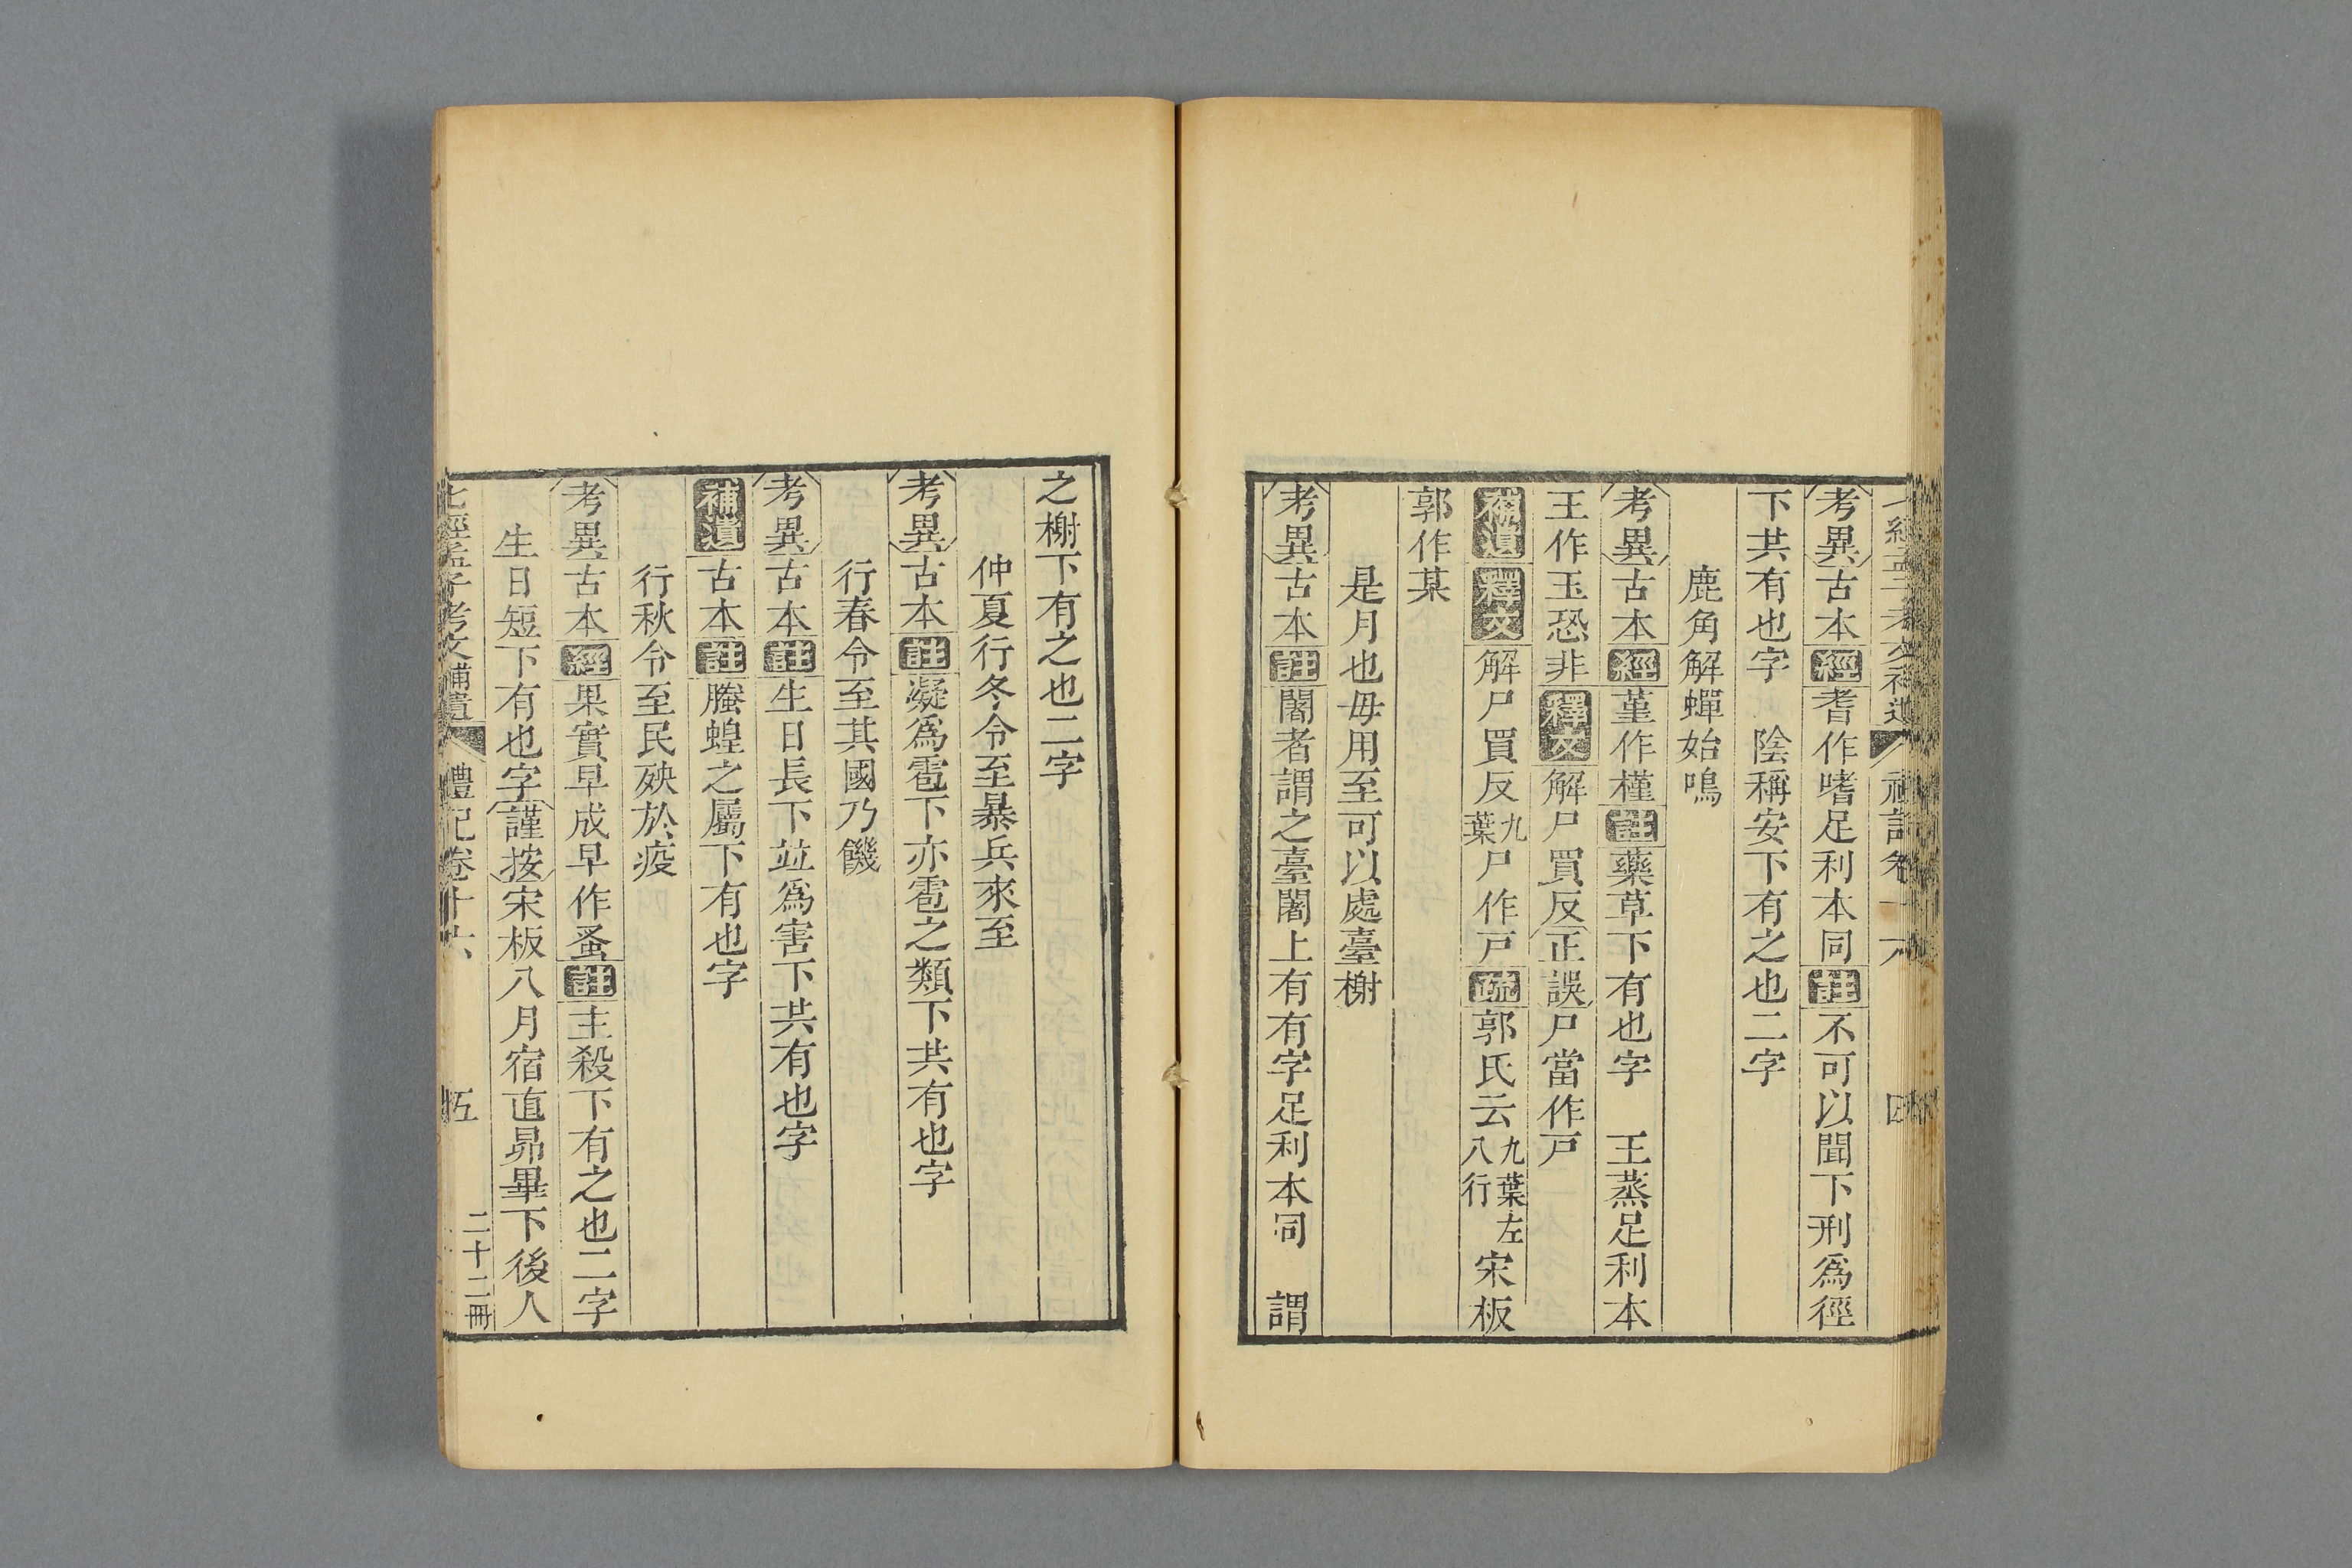 七經孟子考文補遺 禮記卷十六 四
考異古本經耆作嗜足利本同註不可以聞下刑爲徑
下共有也字 陰稱安下有之也二字
鹿角解蟬始鳴
考異古本經堇作槿註藥草下有也字 王蒸足利本
王作玉恐非釋文解尸買反正誤尸當作戸
補遺釋文解尸買反九葉尸作戸疏郭氏云九葉左八行宋板
郭作某
是月也毋用至可以處臺榭
考異古本註闍者謂之臺闍上有有字足利本同 謂
之榭下有之也二字
仲夏行冬令至暴兵來至
考異古本註凝爲雹下亦雹之類下共有也字
行春令至其國乃饑
考異古本註生日長下並爲害下共有也字
補遺古本註螣蝗之屬下有也字
行秋令至民殃於疫
考異古本經果實早成早作蚤註主殺下有之也二字
生日短下有也字謹按宋板八月宿直昴畢下後人
七經孟子考文補遺 禮記卷十六 五 二十二冊